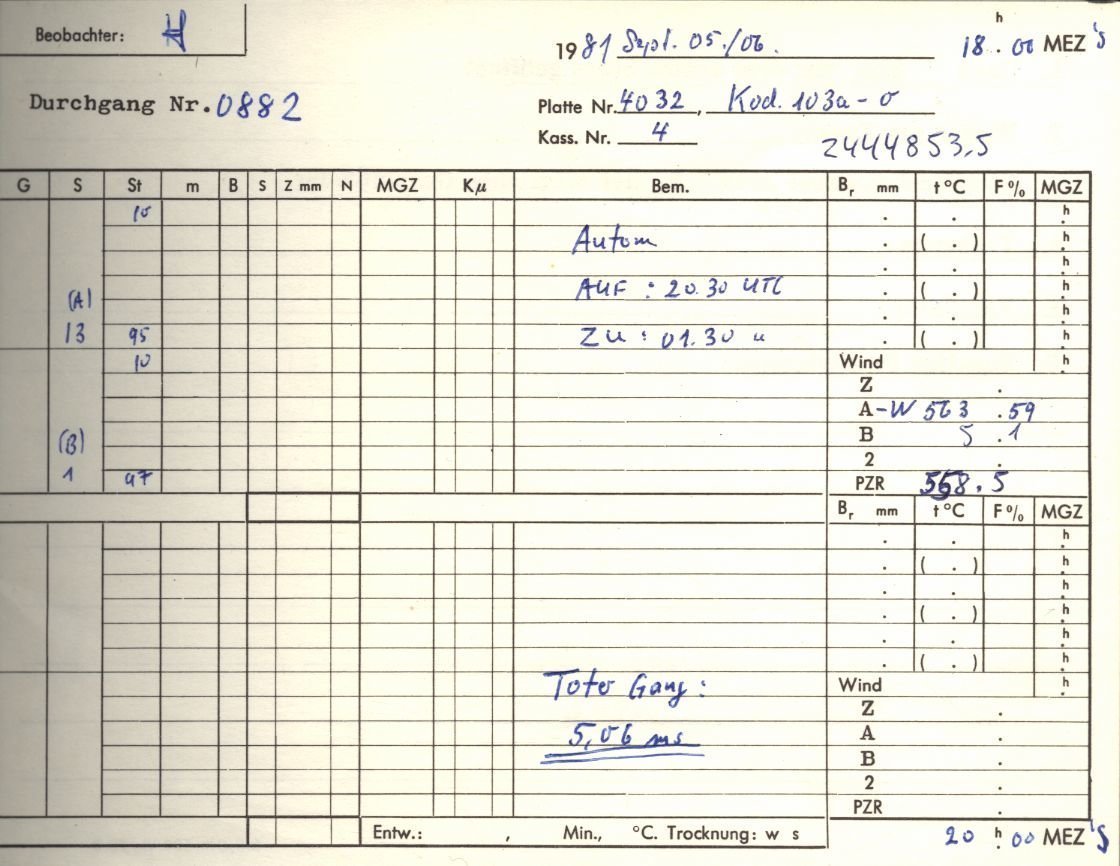 Beobachter: H
1981 Sept. 05./06. 18 h . 00 MEZ's
Durchgang Nr. 0882
Platte Nr. 4032, Kod. 103a-O
Kass. Nr. 4
2444853,5
G S St m B S Z mm N MGZ Kμ Bem. Br mm t °C F % MGZ
10 . . h
Autom . ( . ) h
. . h
(A) AUF : 20.30 UTC . ( . ) h
. . h
13 95 ZU : 01.30 " . ( . ) h
10 Wind h
Z .
A-W 563 .59
(B) B 5 .1
2 .
1 97 PZR 568.5
Br mm t °C F % MGZ
. . h
. ( . ) h
. . h
. ( . ) h
. . h
. ( . ) h
Toter Gang: Wind h
Z .
5,06 ms A .
B .
2 .
PZR .
Entw.: , Min., °C. Trocknung: w s 20 h . 00 MEZ's